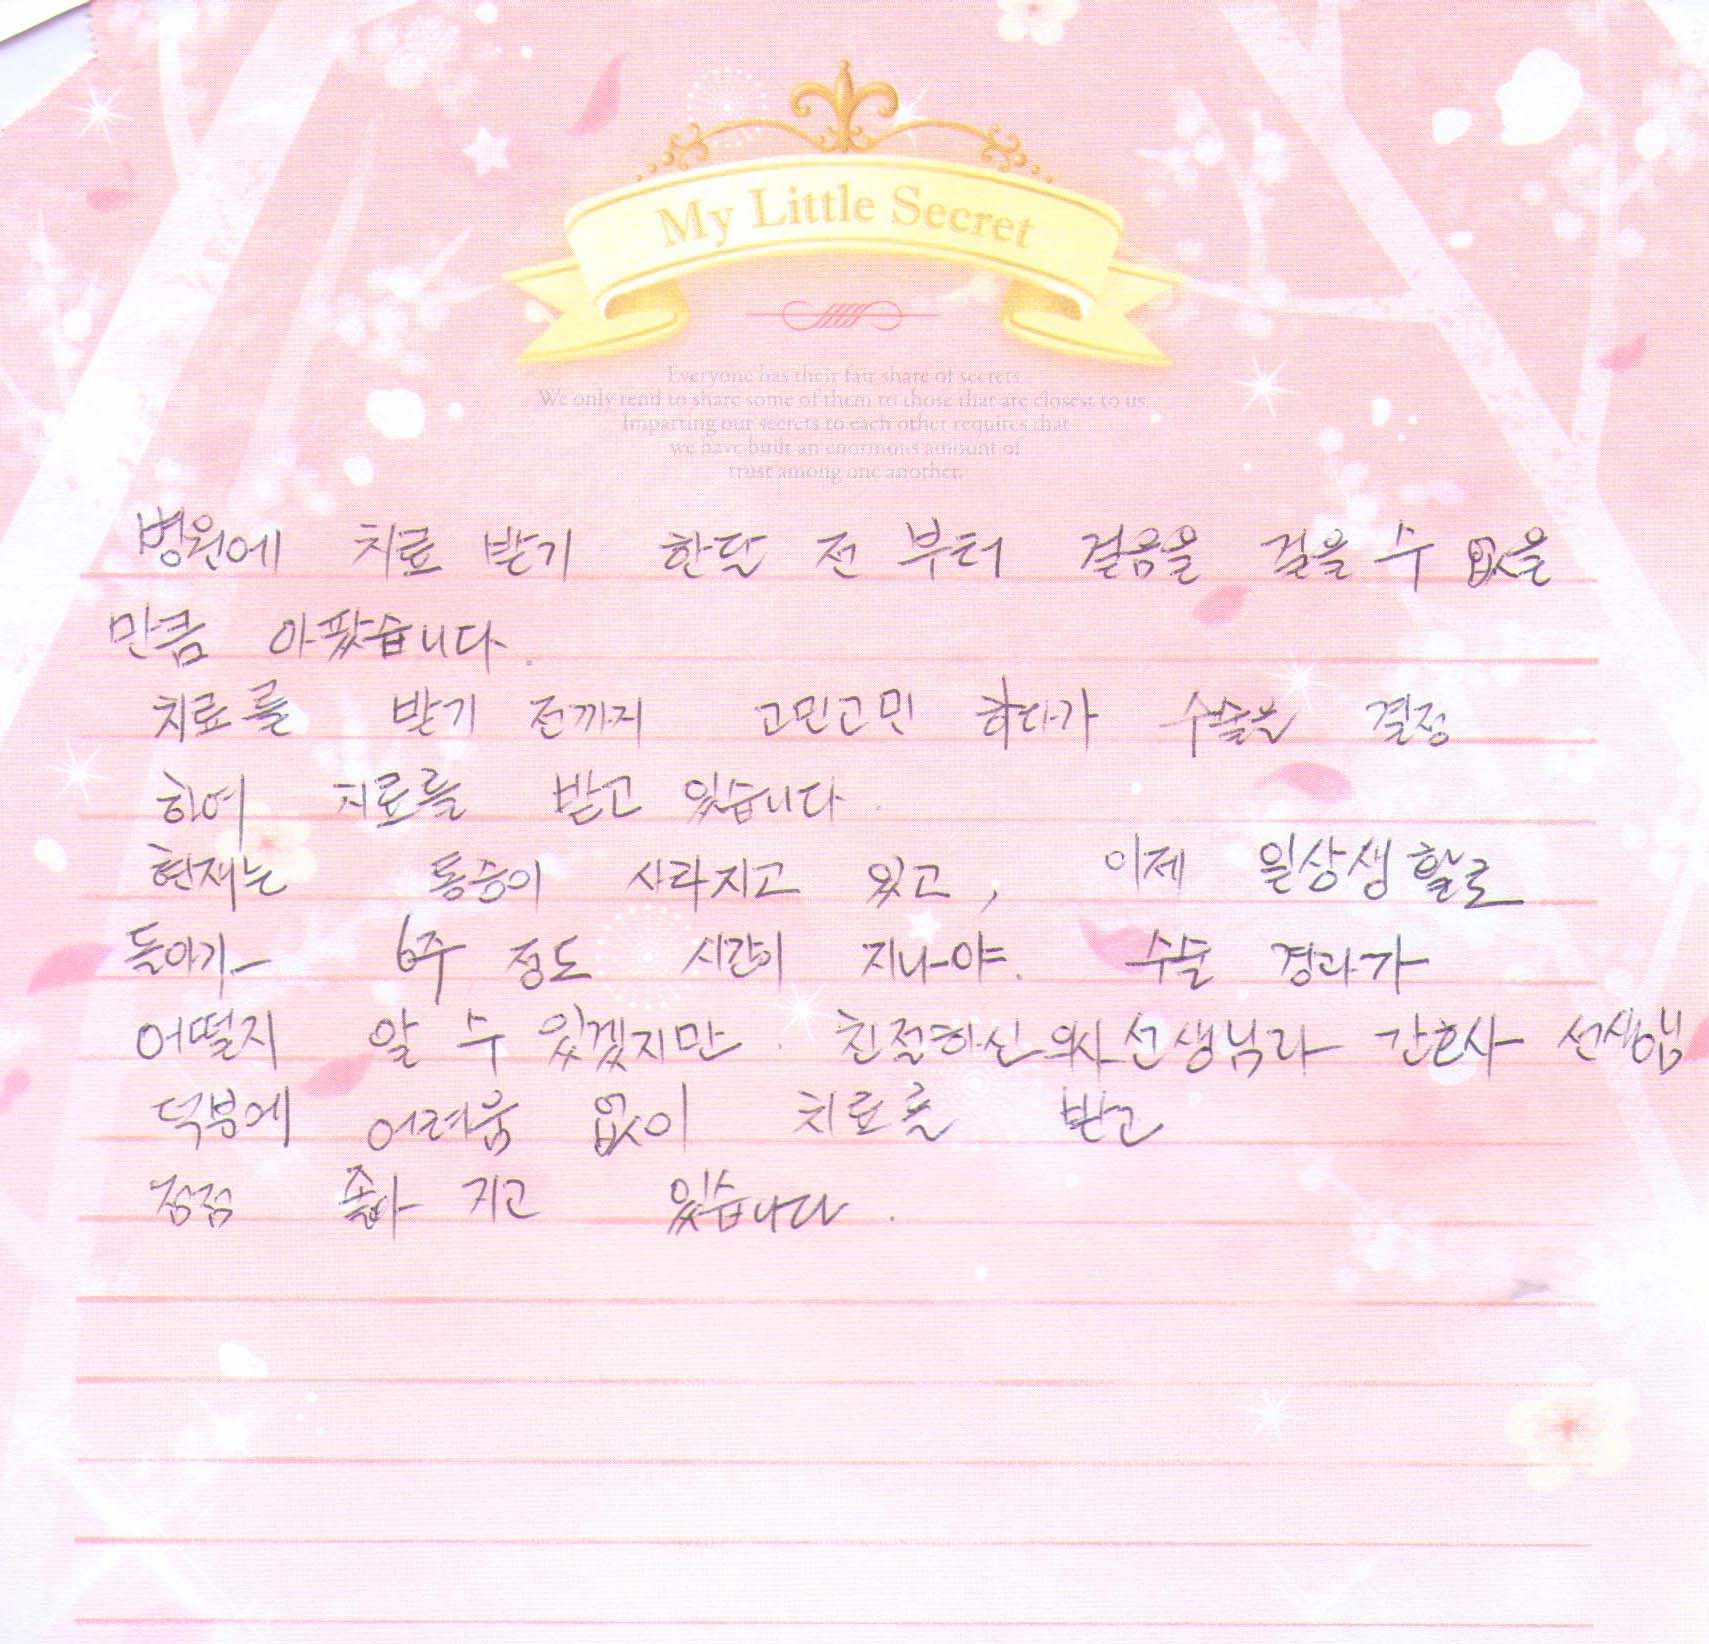 My Little Secret
Everyone has their fair share of secrets.
We only tend to share some of them to those that are closest to us
Imparting our secrets to each other requires that
we have built an enormous amount of
trust among one another.
병원에 치료 받기 한달 전 부터 걸음을 걸을 수 없을
만큼 아팠습니다.
치료를 받기 전까지 고민고민 하다가 수술을 결정
하여 치료를 받고 있습니다.
현재는 통증이 사라지고 있고, 이제 일상생활로
돌아가 6주 정도 시간이 지나야. 수술 경과가
어떨지 알 수 있겠지만. 친절하신 의사선생님과 간호사 선생님
덕분에 어려움 없이 치료를 받고
점점 좋아 지고 있습니다.